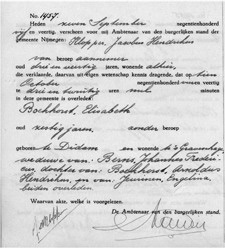 No. 1457
Heden zeven September negentienhonderd
vijf en veertig, verscheen voor mij Ambtenaar van den Burgerlijken stand der
gemeente Nijmegen: Klepper, Jacobus Hendrikus
van beroep aannemer
oud drie en veertig jaren, wonende alhier,
die verklaarde, daarvan uit eigen wetenschap kennis dragende, dat op tien
October negentienhonderd vier en veertig
des te drie en twintig uren nul minuten
in deze gemeente is overleden:
Bockhorst, Elisabeth
oud zestig jaren, zonder beroep
geboren te Didam en wonende te 's Gravenhage
weduwe van Berns, Johannes Frederi
dochter van Bockhorst, Arnoldus
Hendrikus, en van Jeunissen, Engelina
beiden overleden
Waarvan akte, welke is voorgelezen.
De Ambtenaar van den Burgerlijken stand.